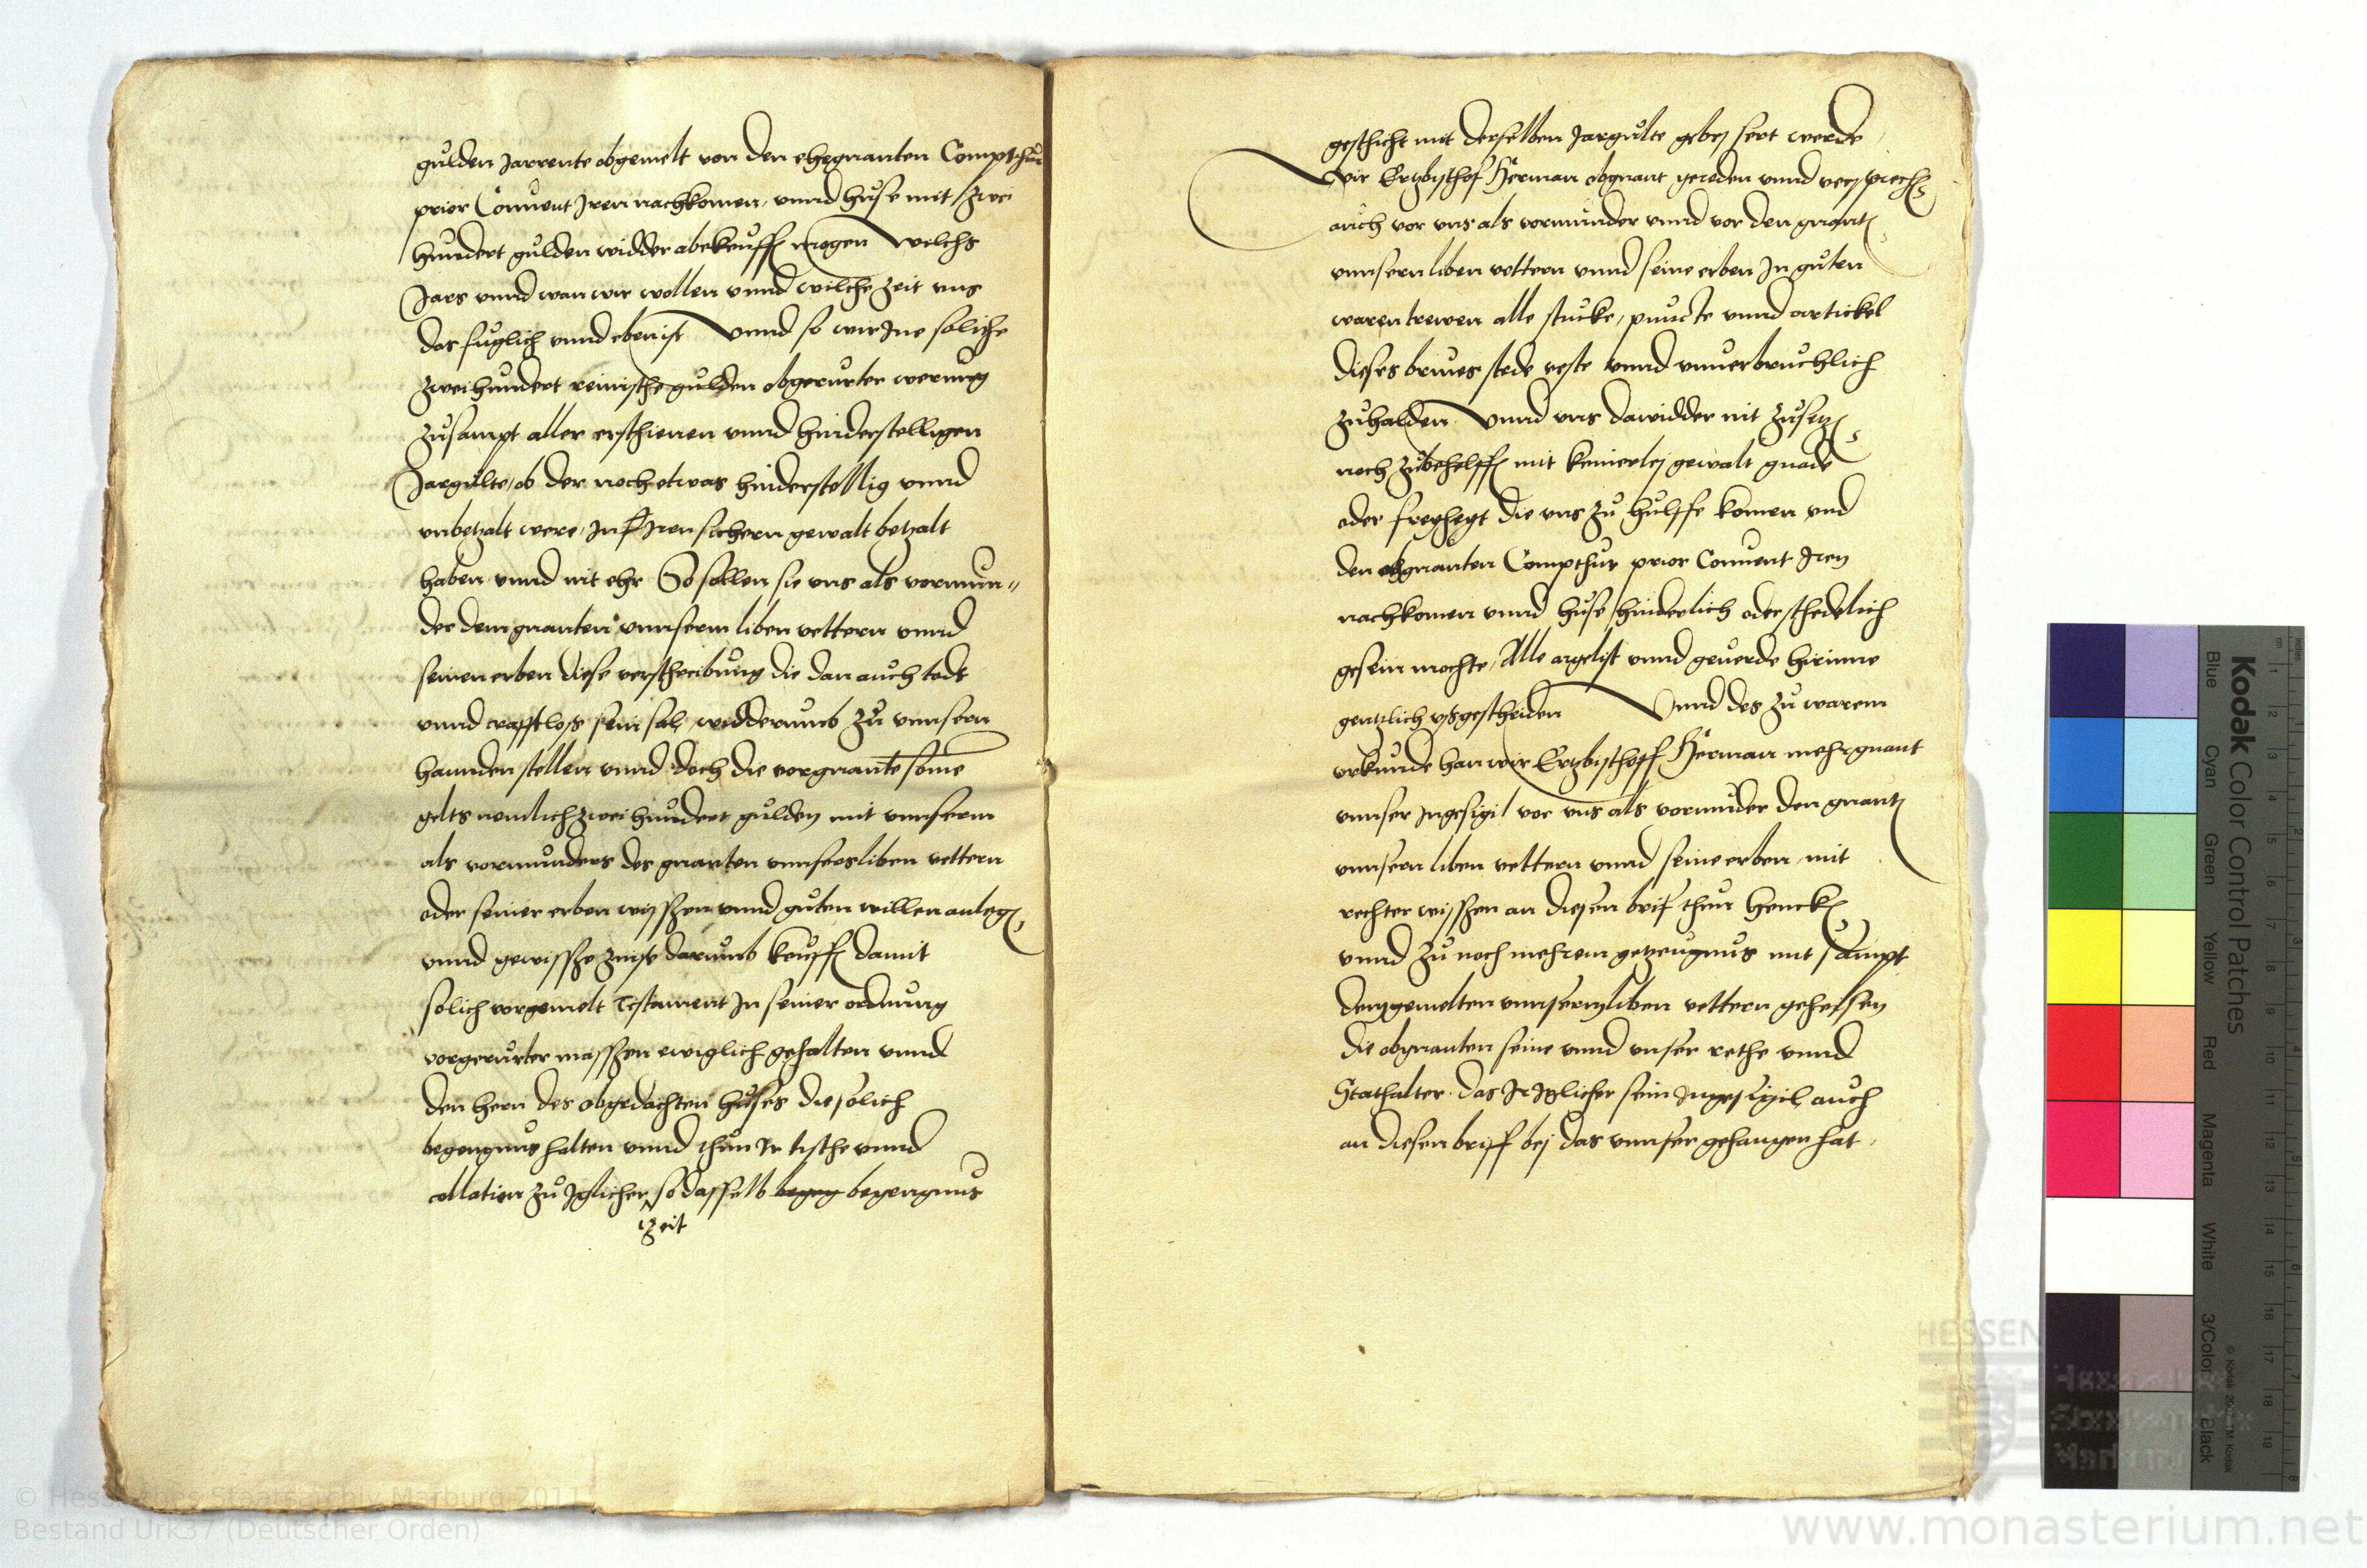 gulden Jarrente obgemelt von den ehegnanten Compthur
prior Convent Iren nachkomen, vnnd huse mit zwei
hundert gulden widder abekeuffen mogen welchs
Jars vnnd wan wir wollen vnnd wilche zeit vns
das fuglich vnnd eben ist Vnnd so wir Ine soliche
zweihundert reinische gulden obgerurter werung
zusampt aller erschienen vnnd hinderstelligen
Jargulte, ob der noch etwas hinderstellig vnnd
vnbetzalt were, in Iren sichern gewalt betzalt
haben vnnd nit ehr So sollen sie vns als vormun-
der dem gnanten vnnserm liben vettern vnnd
seinen erben diese verschreibung die dan auch todt
vnnd crafftloß sein sal widderumb zu vnnsern
hannden stellen vnnd doch die vorgnante some
gelts nemlich zweihundert gulden mit vnnserm
als vormunders des gnanten vnnsers liben vettern
oder seiner erben wisszen vnnd guten willen anlegen
vnnd gewissze zinse darumb keuffen damit
solich vorgemelt Testament in seiner ordnung
vorgerurter masszen ewiglich gehalten vnnd
den hern des obgedachten huses die solich
begengnus halten vnnd thun Ir tische vnnd
collation zu Iglicher so dasselb begeng begengnus
zeit
geschicht mit derselben Jargulte gebessert werde
Wir Ertzbischof Herman obgnant gereden vnnd versprechen
auch vor vns als vormunder vnnd vor den gnanten
vnnsern liben vettern vnnd seine erben In guten
waren trewen alle stucke, puncte vnnd artickel
dieses brives stede veste vnnd vnuerbruchlich
zuhalden Vnnd vns dawidder nit zusetzen
noch zubehelffen mit keinerlej gewalt gnade
oder freyheyt die vns zu hulffe komen vnd
den obgnanten Compthur prior Convent Iren
nachkomen vnnd huse hinderlich oder schedelich
gesein mochte, Alle argelist vnnd geuerde hirinne
gentzlich vßgescheiden Vnnd des zu warem
vrkunde han wir Ertzbischoff Herman mehrgnant
vnnser Ingesigil vor vns als vormunder den gnanten
vnnsern liben vettern vnnd seine erben, mit
rechter wisszen an diesen brif thun hencken
vnnd zu noch mehrem getzeugnus mit sampt
dem gemelten vnnserm liben vettern geheissen
die obgnanten seine vnnd vnser rethe vnnd
Stathalter das Ir Iglicher sein Ingesigil auch
an diesen briff bej das vnnser gehangen hat,
© Hessisches Staatsarchiv Marburg 2011
Bestand Urk37 (Deutscher Orden)
www.monasterium.net
HESSEN
Kodak Color Control Patches
Blue Cyan Green Yellow Red Magenta White 3/Color Black